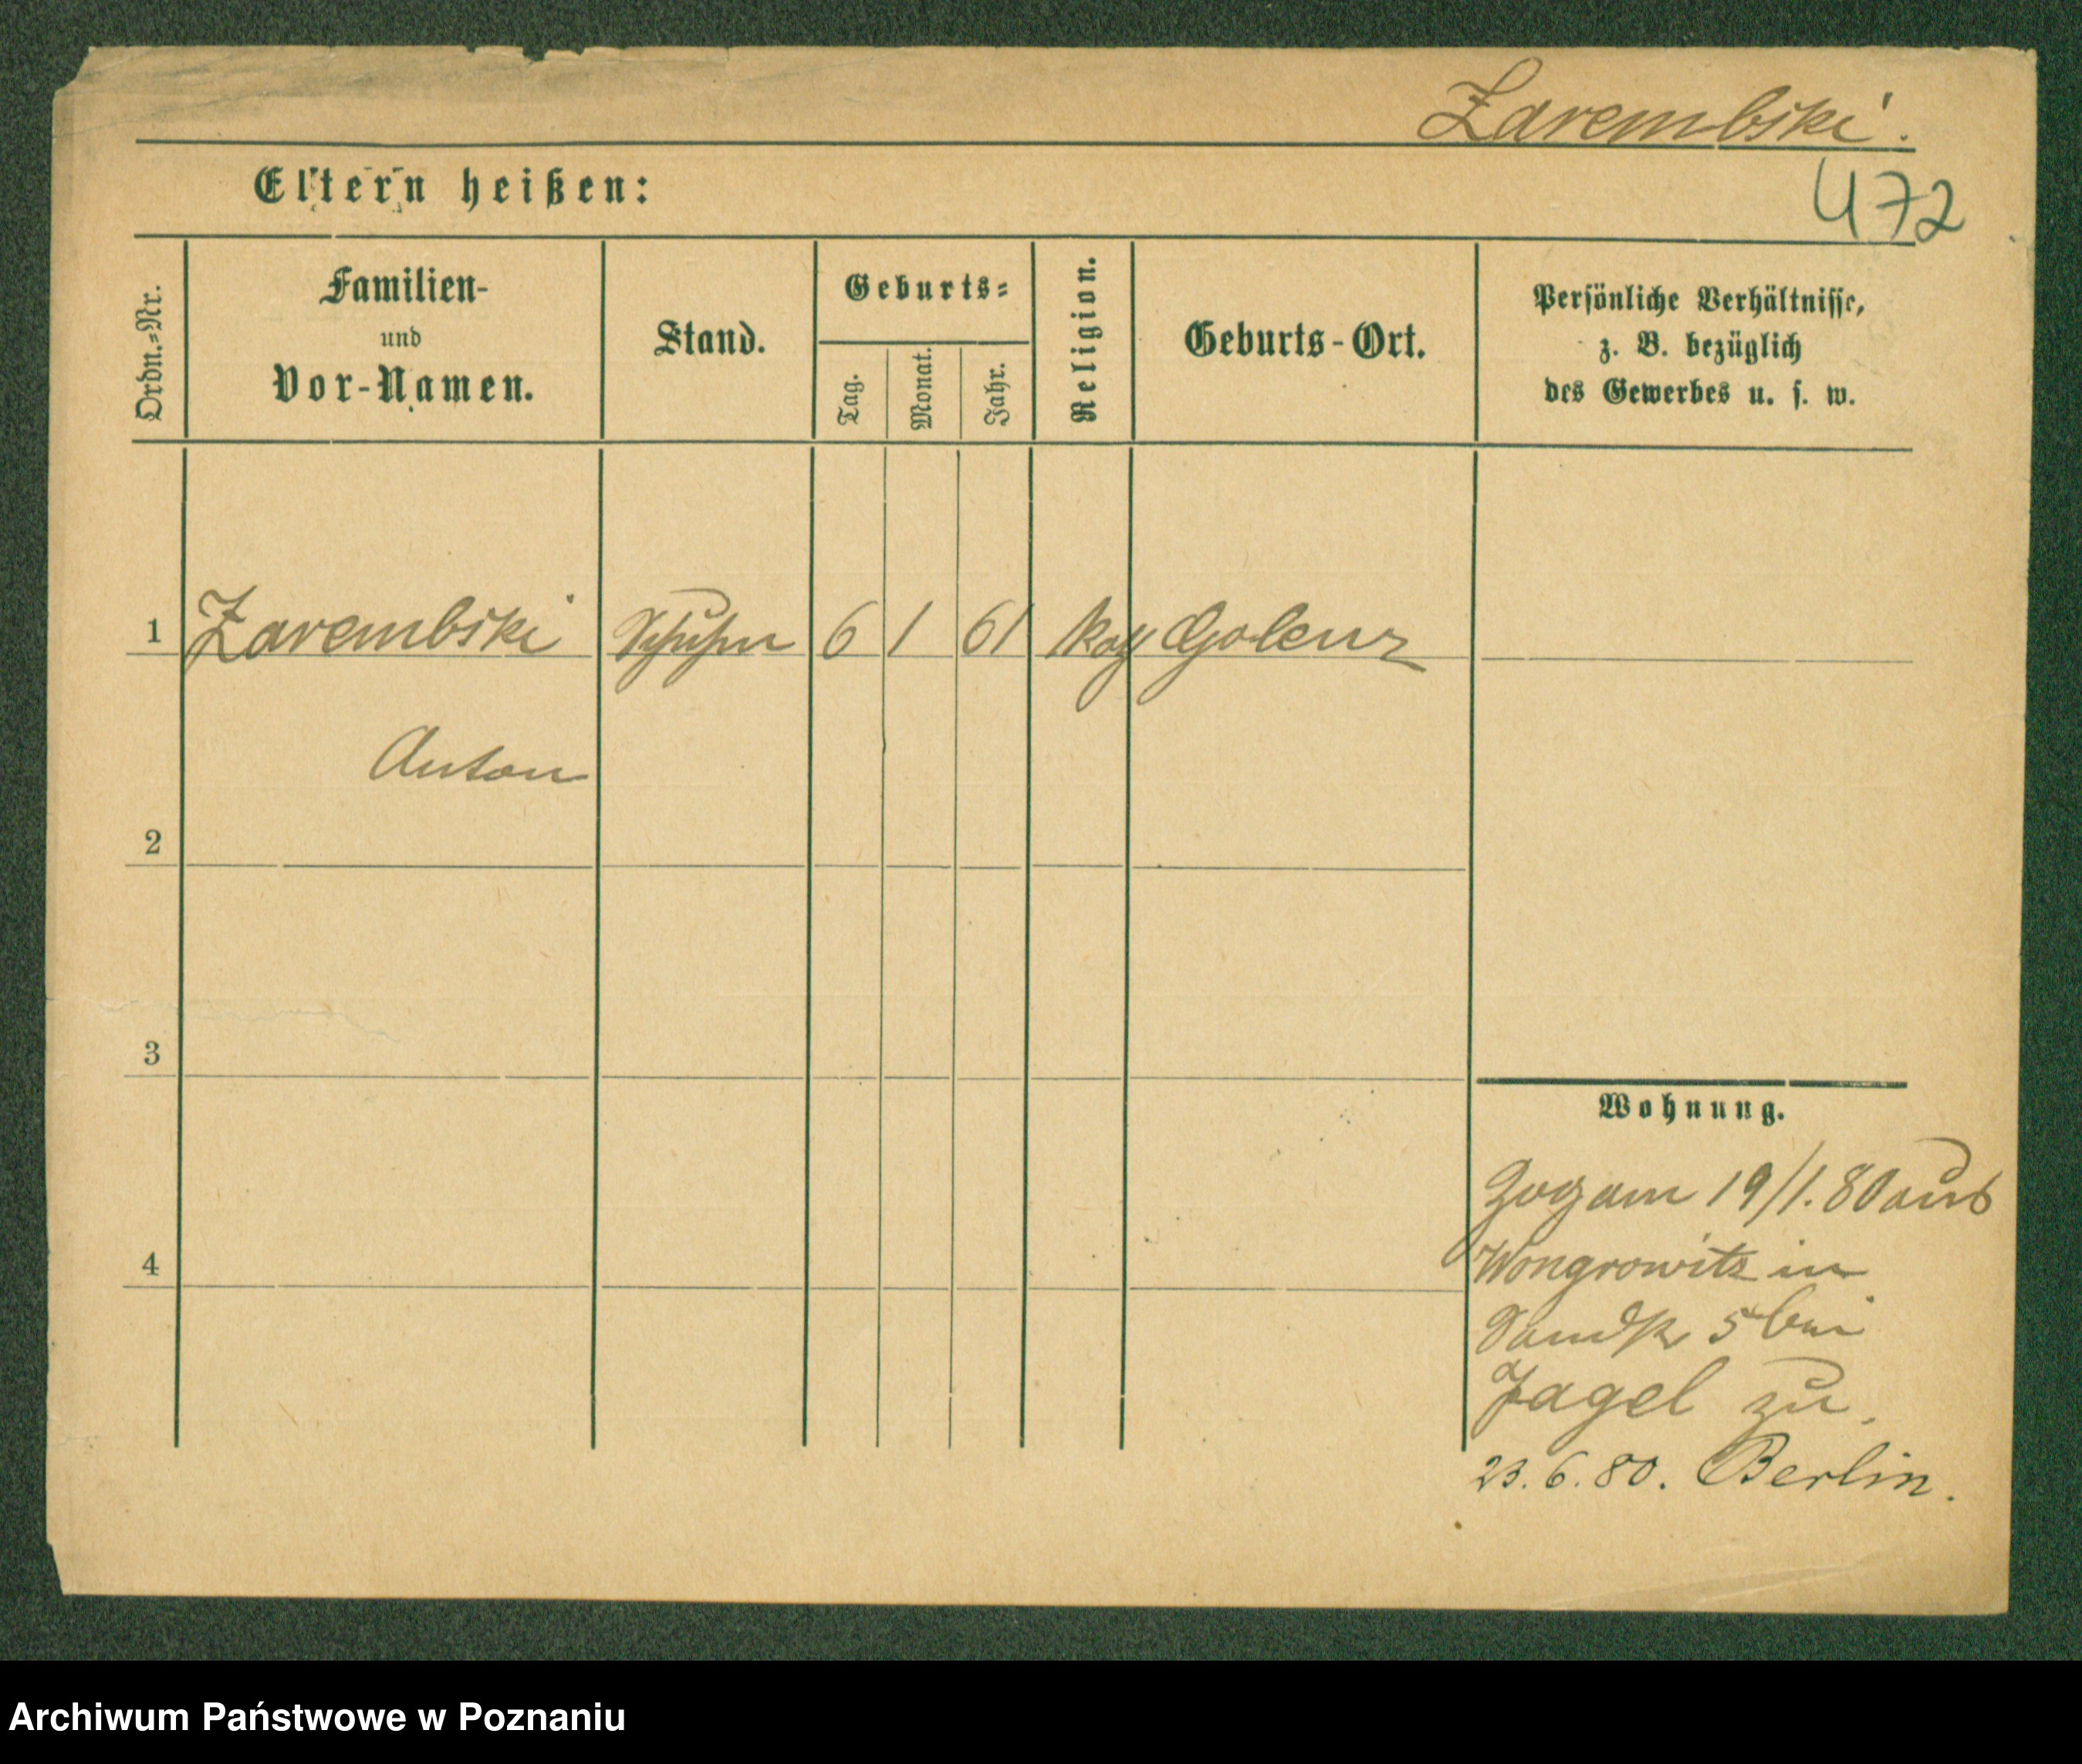 Zarembski.
Eltern heißen:
472
Ordn.=Nr.
Familien-
und
Vor-Namen.
Stand.
Geburts=
Tag.
Monat.
Jahr.
Religion.
Geburts-Ort.
Persönliche Verhältnisse,
z. B. bezüglich
des Gewerbes u. s. w.
1 Zarembski 6 1 61 kath
Anton
2
3
4
Wohnung.
Zog am 19/1. 80 aus
Wongrowitz in
5 bei
Jagel zu.
23. 6. 80. Berlin.
Archiwum Państwowe w Poznaniu